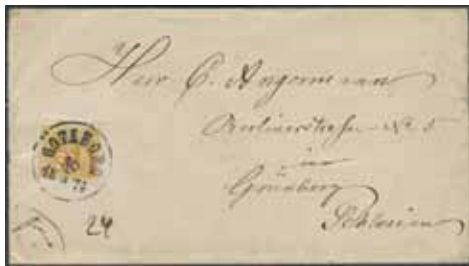 Herr C. Angermann
Berlinerstraße No 5
in
Grünberg
Schlesien
GÖTEBORG
24